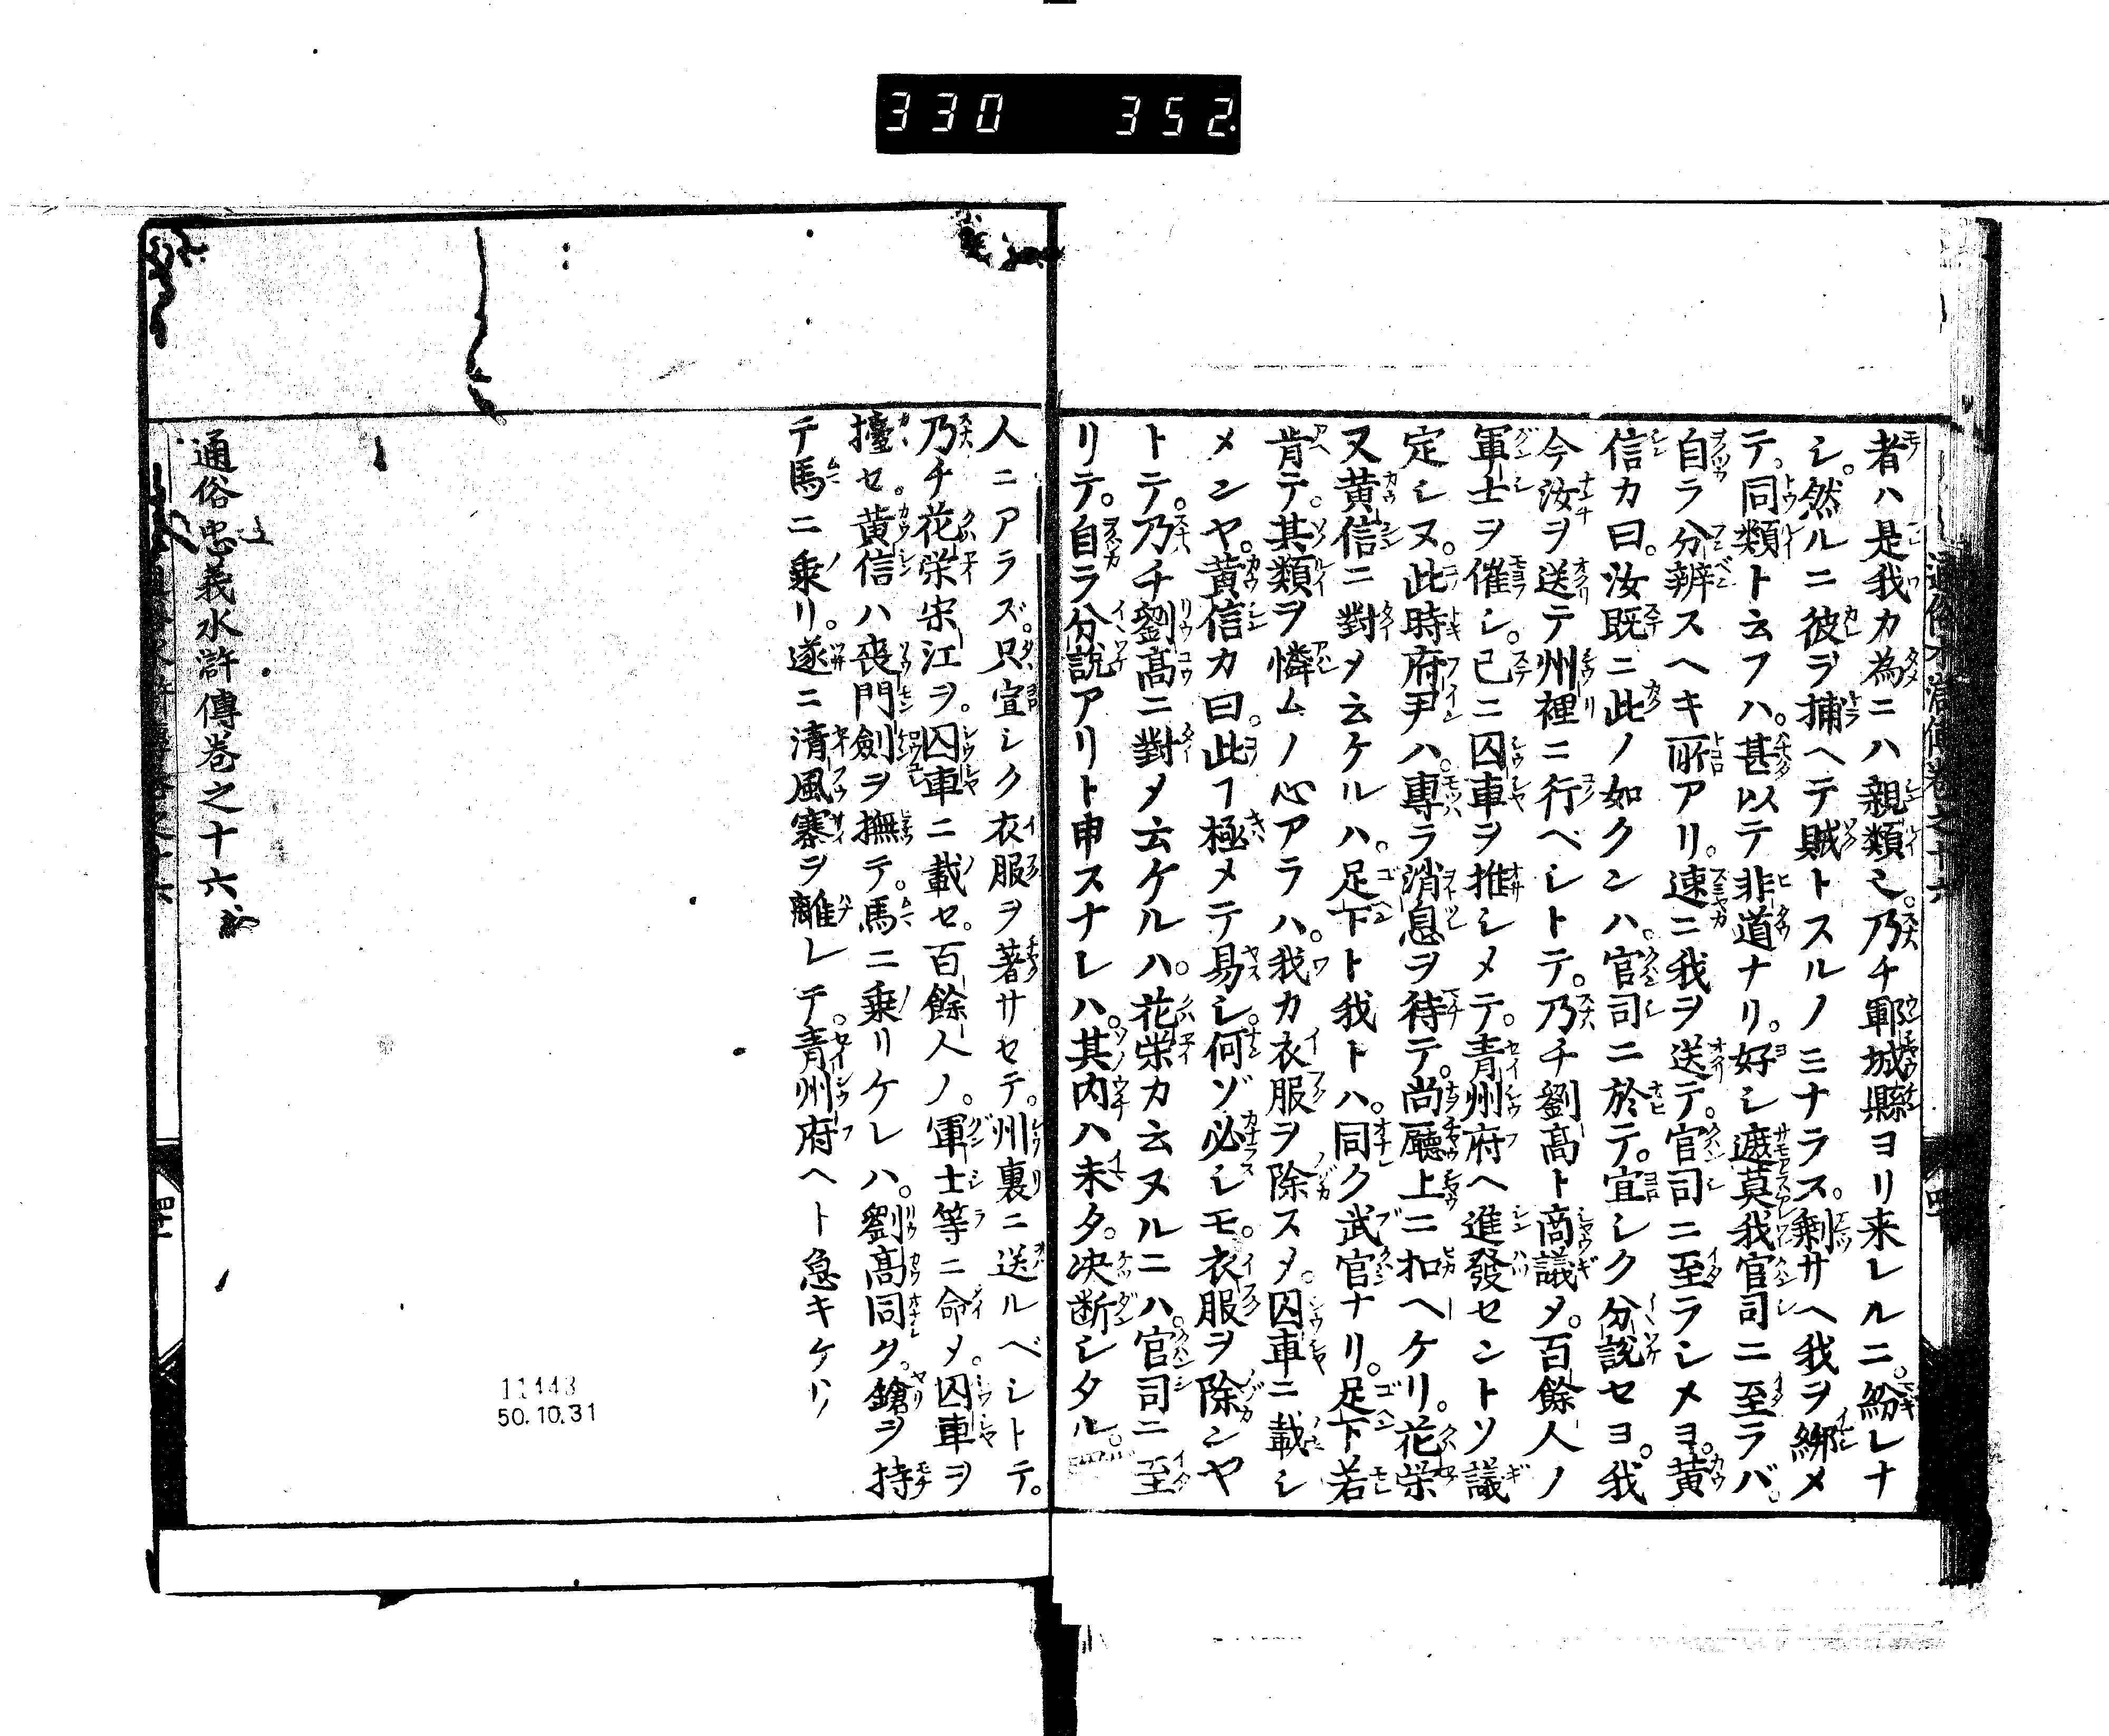 330 352
者ハ是我カ為ニハ親類也。乃チ鄆城縣ヨリ来レルニ。紛レナ
シ。然ルニ彼ヲ捕ヘテ賊トスルノミナラス。剰サヘ我ヲ綁メ
テ。同類ト云フハ。甚以テ非道ナリ。好シ遮莫我官司ニ至ラバ。
自ラ分辨スヘキ所アリ。速ニ我ヲ送テ。官司ニ至ラシメヨ。黄
信カ曰。汝既ニ此ノ如クンハ。官司ニ於テ。宜シク分説セヨ。我
今汝ヲ送テ州裡ニ行ベシトテ。乃チ劉高ト商議メ。百餘人ノ
軍士ヲ催シ。已ニ囚車ヲ推シメテ。青州府ヘ進發セントソ議
定シヌ。此時府尹ハ。專ラ消息ヲ待テ。尚廳上ニ扣ヘケリ。花栄
又黄信ニ對メ云ケルハ。足下ト我トハ。同ク武官ナリ。足下若
肯テ。其類ヲ憐ムノ心アラハ。我カ衣服ヲ除スメ。囚車ニ載シ
メンヤ。黄信カ曰。此ヿ極メテ易シ。何ゾ必シモ。衣服ヲ除ンヤ
トテ。乃チ劉高ニ對メ云ケルハ。花栄カ云ヌルニハ。官司ニ至
リテ。自ラ分説アリト申スナレハ。其内ハ未タ。决断シタル。
人ニアラズ。只宜シク衣服ヲ著サセテ。州裏ニ送ルベシトテ。
乃チ花栄宋江ヲ。囚車ニ載セ。百餘人ノ。軍士等ニ命メ。囚車ヲ
擡セ。黄信ハ喪門劍ヲ撫テ。馬ニ乗リケレハ。劉高同ク。鎗ヲ持
テ馬ニ乗リ。遂ニ清風寨ヲ離レテ。青州府ヘト急キケリ
通俗忠義水滸傳巻之十六
11443
50.10.31